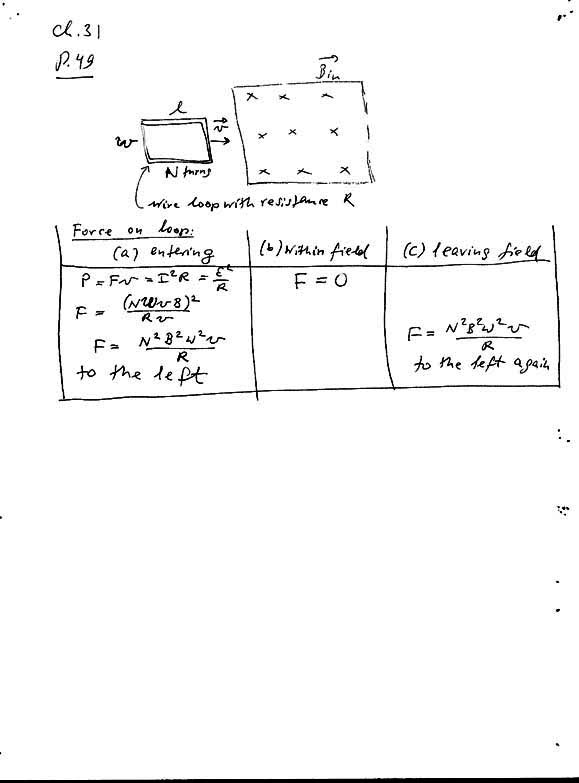 Ch. 31
P. 49
B in
l
v
w
x x x
N turns
x x x
x x x
wire loop with resistance R
Force on loop:
(a) entering
(b) Within field
(c) leaving field
P = Fv = I²R = ε²/R
F = (NWvB)²/Rv
F = N²B²w²v/R
to the left
F = 0
F = N²B²w²v/R
to the left again